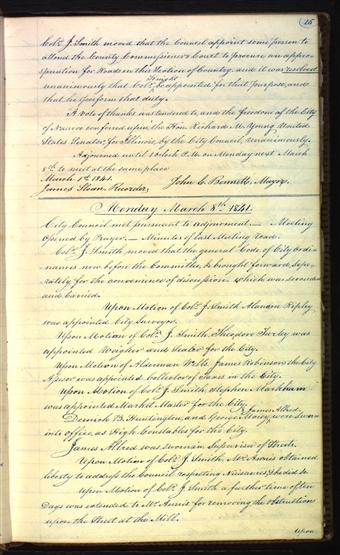 15
Coln. J. Smith moved that the Council appoint some person to
attend the County Commissioner's Court to procure an appro-
-priation for Roads in this Section of Country, and it was resolved
Knight
unanimously that Coln. be appointed for that purpose, and
that he perform that duty.
A vote of thanks was tendered to, and the freedom of the City
of Nauvoo conferred upon the Hon. Richard M. Young, United
States Senator for Illinois, by the City Council, unanimously.
Adjourned until 1 o'clock P.M. on Monday next March
8th. to meet at the same place.
March 1st. 1841.
James Sloan, Recorder, John C. Bennett, Mayor.
Monday March 8th. 1841.
City Council met pursuant to adjournment. — Meeting
Opened by Prayer. — Minutes of last Meeting read.
Coln. J. Smith moved that the general Code of City ordi-
nances now before the Committee, be brought forward sepa-
rately for the convenience of discussion, which was seconded
and carried.
Upon Motion of Coln. J. Smith Alanson Ripley,
was appointed City Surveyor.
Upon Motion of Coln. J. Smith, Theodore Turley was
appointed Weigher and Sealer for the City.
Upon Motion of Alderman Wells, James Robinson the City
Assessor was appointed Collector of Taxes in the City.
Upon Motion of Coln. J. Smith, Stephen Markham
was appointed Market Master for the City.
James Allred,
Dimick B. Huntington, and George Morey, were sworn
into office, as High Constables for the City.
James Allred was sworn in, Supervisor of Streets.
Upon Motion of Coln. J. Smith, Mr. Annis obtained
liberty to address the Council respecting Nuisances, & he did so.
Upon Motion of Coln. J. Smith a further time of ten
Days was extended to Mr. Annis for removing the obstruction
upon the Street at the Mill.
Upon